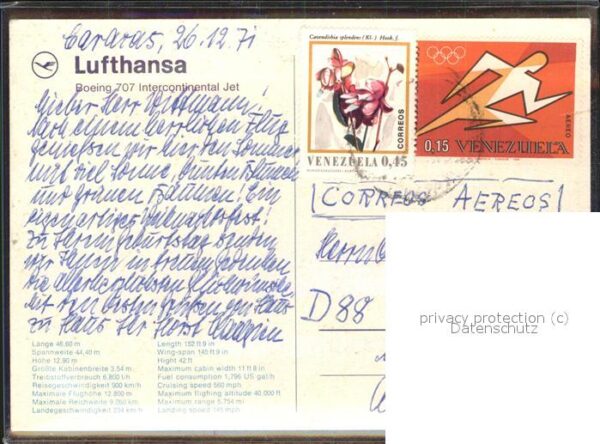 Caracas, 26.12.71
Lufthansa
Boeing 707 Intercontinental Jet
Lieber Herr
Nach einem herrlichen Flug
genießen wir hier den Sommer
mit viel Sonne, bunten Blumen
und grünen Bäumen! Ein
eigenartiges Weihnachtsfest!
Zu Ihrem Geburtstag senden
wir Ihnen in treuem Gedenken
die allerherzlichsten Glückwünsche
Mit den besten Grüßen von Haus
zu Haus Ihr Horst
Cavendishia splendens / Kl. J Hook. f.
CORREOS
VENEZUELA 0,45
AEREO
0,15 VENEZUELA
[CORREOS AEREOS]
Herrn
D 88
privacy protection (c)
Datenschutz
Länge 46,60 m
Spannweite 44,40 m
Höhe 12,90 m
Größte Kabinenbreite 3,54 m
Treibstoffverbrauch 6.800 l/h
Reisegeschwindigkeit 900 km/h
Maximale Flughöhe 12.800 m
Maximale Reichweite 9.260 km
Landegeschwindigkeit 234 km/h
Length 152 ft 9 in
Wing-span 145 ft 9 in
Hight 42 ft
Maximum cabin width 11 ft 8 in
Fuel consumption 1,796 US gal/h
Cruising speed 560 mph
Maximum flighing altitude 40.000 ft
Maximum range 5.754 mi
Landing speed 145 mph